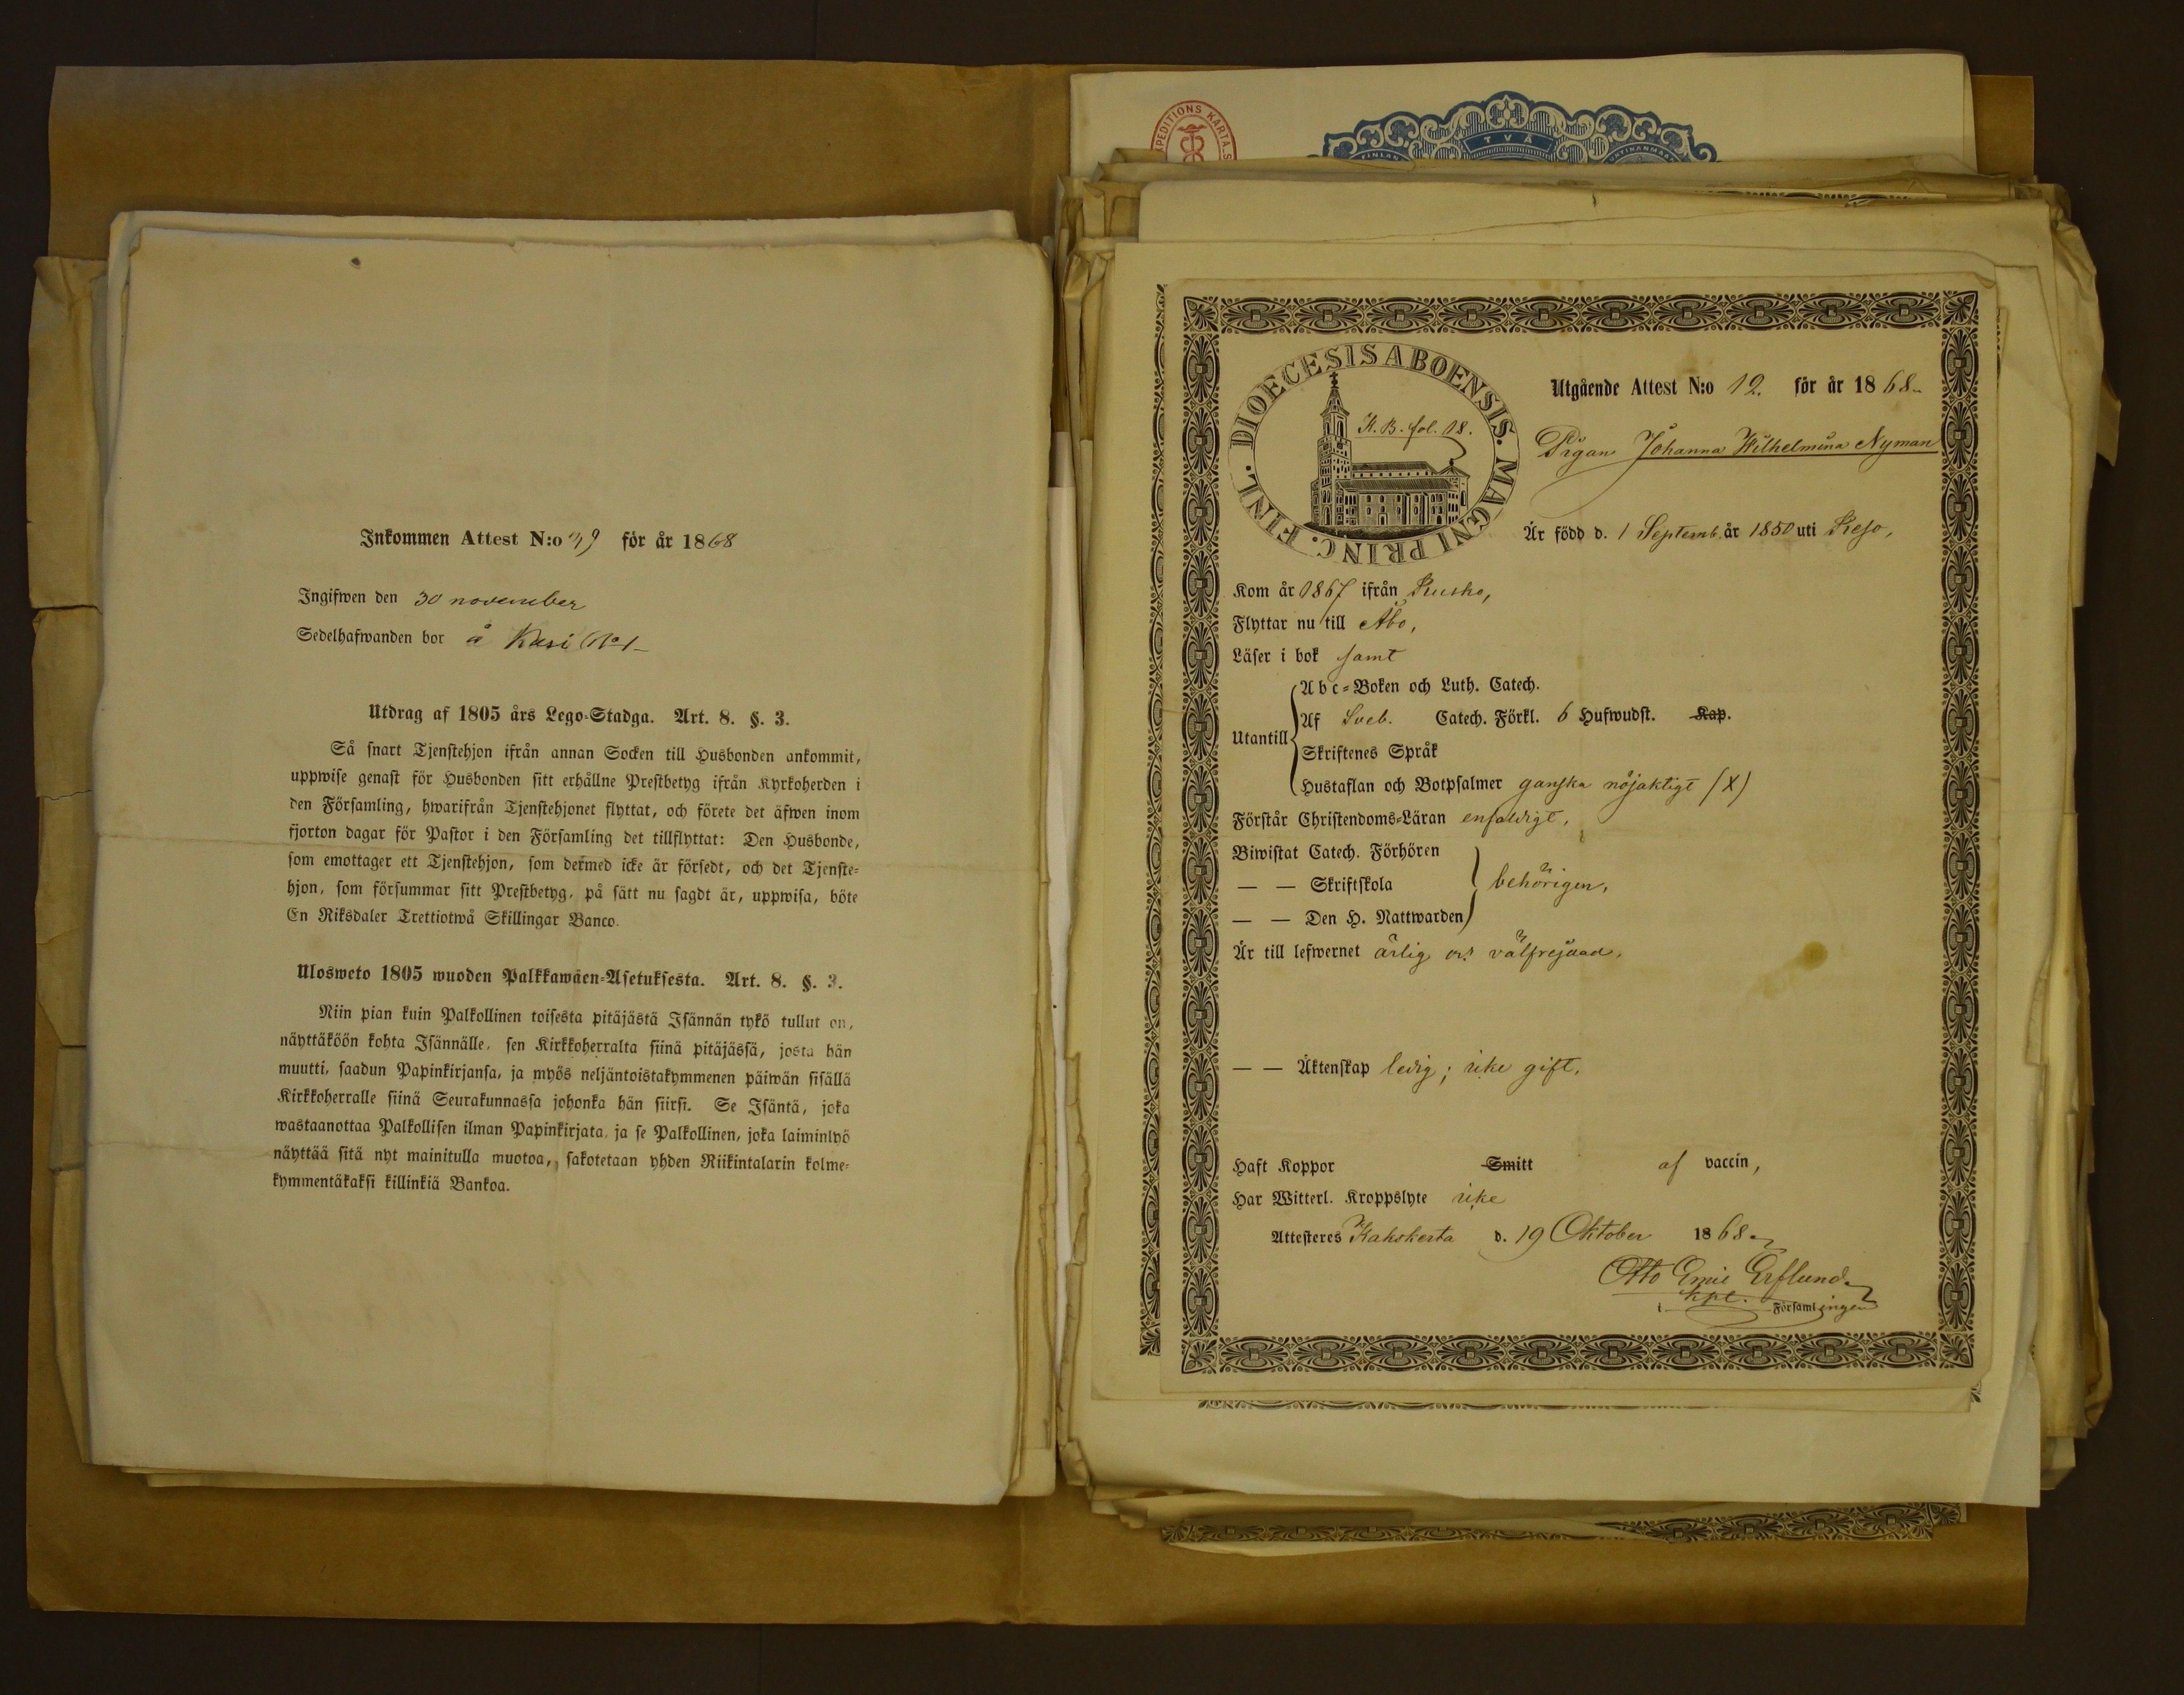 Inkommen Attest N:o 39 för år 1868
Ingifwen den 30 november
Sedelhafwanden bor å Kasi No 1
Utdrag af 1805 års Lego-Stadga. Art. 8. §. 3.
Så snart Tjenstehjon ifrån annan Socken till Husbonden ankommit,
uppwise genast för Husbonden sitt erhållne Prestbetyg ifrån Kyrkoherden i
den Församling, hwarifrån Tjenstehjonet flyttat, och förete det äfwen inom
fjorton dagar för Pastor i den Församling det tillflyttat: Den Husbonde,
som emottager ett Tjenstehjon, som dermed icke är försedt, och det Tjenste-
hjon, som försummar sitt Prestbetyg, på sätt nu sagdt är, uppwisa, böte
En Riksdaler Trettiotwå Skillingar Banco.
Ulosweto 1805 wuoden Palkkawäen-Asetuksesta. Art. 8. §. 3.
Niin pian kuin Palkollinen toisesta pitäjästä Isännän tykö tullut on,
näyttäköön kohta Isännälle, sen Kirkkoherralta siinä pitäjässä, josta hän
muutti, saadun Papinkirjansa, ja myös neljäntoistakymmenen päiwän sisällä
Kirkkoherralle siinä Seurakunnassa johonka hän siirsi. Se Isäntä, joka
wastaanottaa Palkollisen ilman Papinkirjata, ja se Palkollinen, joka laiminlyö
näyttää sitä nyt mainitulla muotoa, sakotetaan yhden Riikintalarin kolme-
kymmentäkaksi killinkiä Bankoa.
EXPEDITIONS KARTA.S
TVÅ
FINLAN
DIOECESIS ABOENSIS. MAGNI PRINC. FINL.
K. B. fol. 18.
Utgående Attest N:o 12. för år 1868
Pigan Johanna Wilhelmina Nyman
Är född d. 1 Septemb. år 1850 uti Reso,
Kom år 1867 ifrån Rusko,
Flyttar nu till Åbo,
Läser i bok samt
Utantill
Abc-Boken och Luth. Catech.
Af Sveb. Catech. Förkl. 6 Hufwudst. Kap.
Skriftenes Språk
Hustaflan och Botpsalmer ganska nöjaktigt (X)
Förstår Christendoms-Läran enfaldigt,
Biwistat Catech. Förhören
— — Skriftskola behörigen,
— — Den H. Nattwarden
Är till lefwernet ärlig och välfrejdad,
— — Äktenskap ledig; icke gift,
Haft Koppor Smitt af vaccin,
Har Witterl. Kroppslyte icke
Attesteres Kakskerta d. 19 Oktober 1868
Otto Emil Erflund
kpl.
i Församlingen